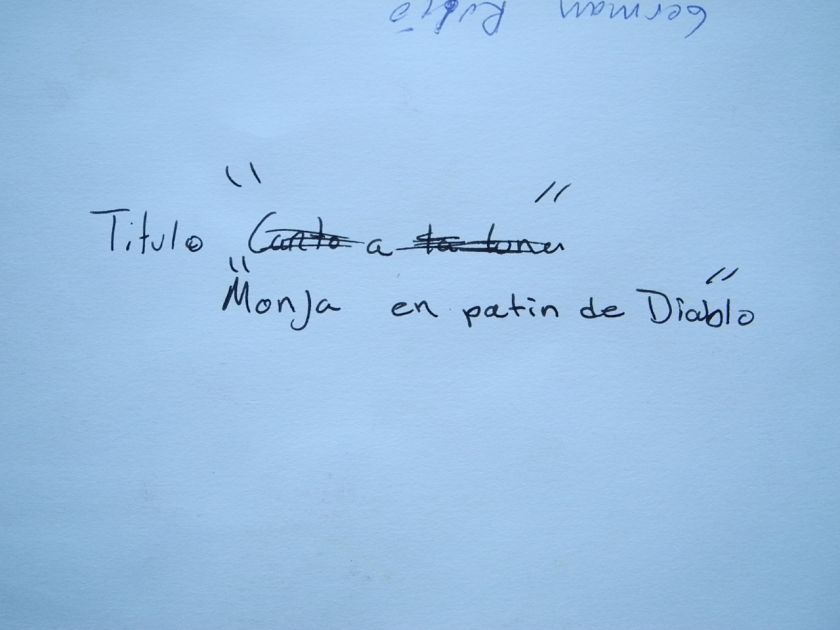 German Rubio
Titulo "Canto a la luna"
"Monja en patin de Diablo"